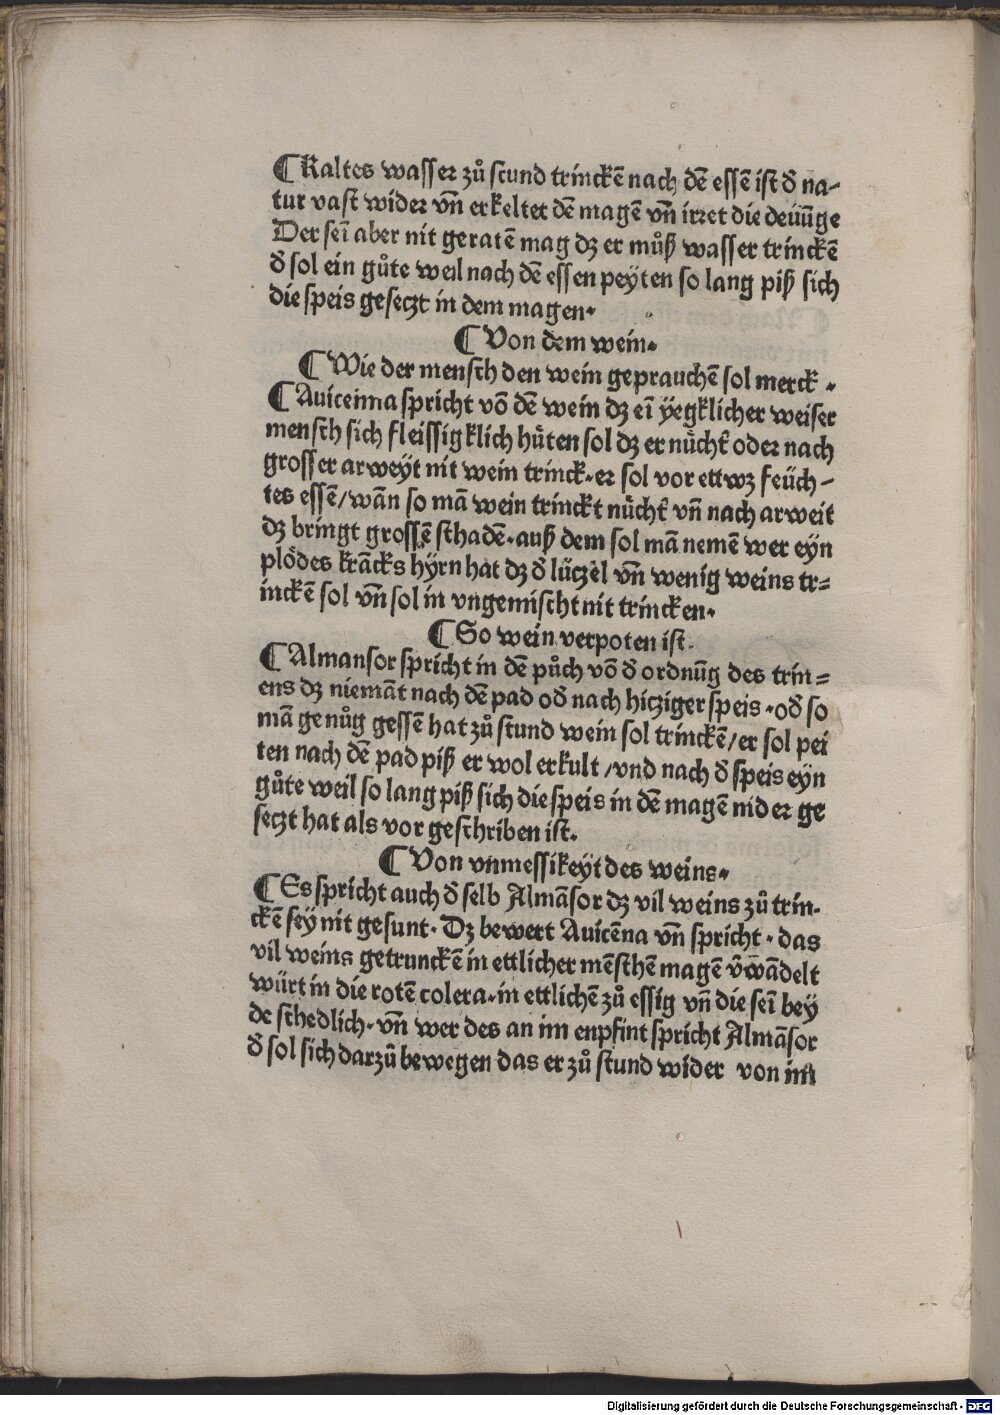 ¶ Kaltes wasser zů stund trinckẽ nach dẽ essẽ ist d̕ na-
tur vast wider vñ erkeltet dẽ magẽ vñ irret die deüũge
Der seĩ aber nit geratẽ mag dz er můß wasser trinckẽ
d̕ sol ein gůte weil nach dẽ essen peyten so lang piß sich
die speis gesetzt in dem magen.
¶ Von dem wein.
¶ Wie der mensch den wein geprauchẽ sol merck.
¶ Auicenna spricht võ dẽ wein dz eĩ yegklicher weiser
mensch sich fleissigklich hüten sol dz er nücht̕ oder nach
grosser arweyt nit wein trinck. er sol vor ettwz feüch-
tes essẽ/wãn so mã wein trinckt nücht̕ vñ nach arweit
dz bringt grossẽ schadẽ. auß dem sol mã nemẽ wer eyn
plödes krãcks hyrn hat dz d̕ lützel vñ wenig weins tr=
inckẽ sol vñ sol in vngemischt nit trincken.
¶ So wein verpoten ist.
¶ Almansor spricht in dẽ půch võ d̕ ordnũg des trin=
ens dz niemãt nach dẽ pad od̕ nach hicziger speis. od̕ so
mã genůg gessẽ hat zů stund wein sol trinckẽ/er sol pei
ten nach dẽ pad piß er wol erkult/vnd nach d̕ speis eyn
gůte weil so lang piß sich die speis in dẽ magẽ nider ge
seczt hat als vor geschriben ist.
¶ Von vnmessikeyt des weins.
¶ Es spricht auch d̕ selb Almãsor dz vil weins zů trin.
ckẽ sey nit gesunt. Dz bewert Auicẽna vñ spricht. das
vil weins getrunckẽ in ettlicher mẽschẽ magẽ v̕wãdelt
würt in die rotẽ colera. in ettlichẽ zů essig vñ die seĩ bey
de schedlich. vñ wer des an im enpfint spricht Almãsor
d̕ sol sich darzů bewegen das er zů stund wider von im
Digitalisierung gefördert durch die Deutsche Forschungsgemeinschaft - DFG